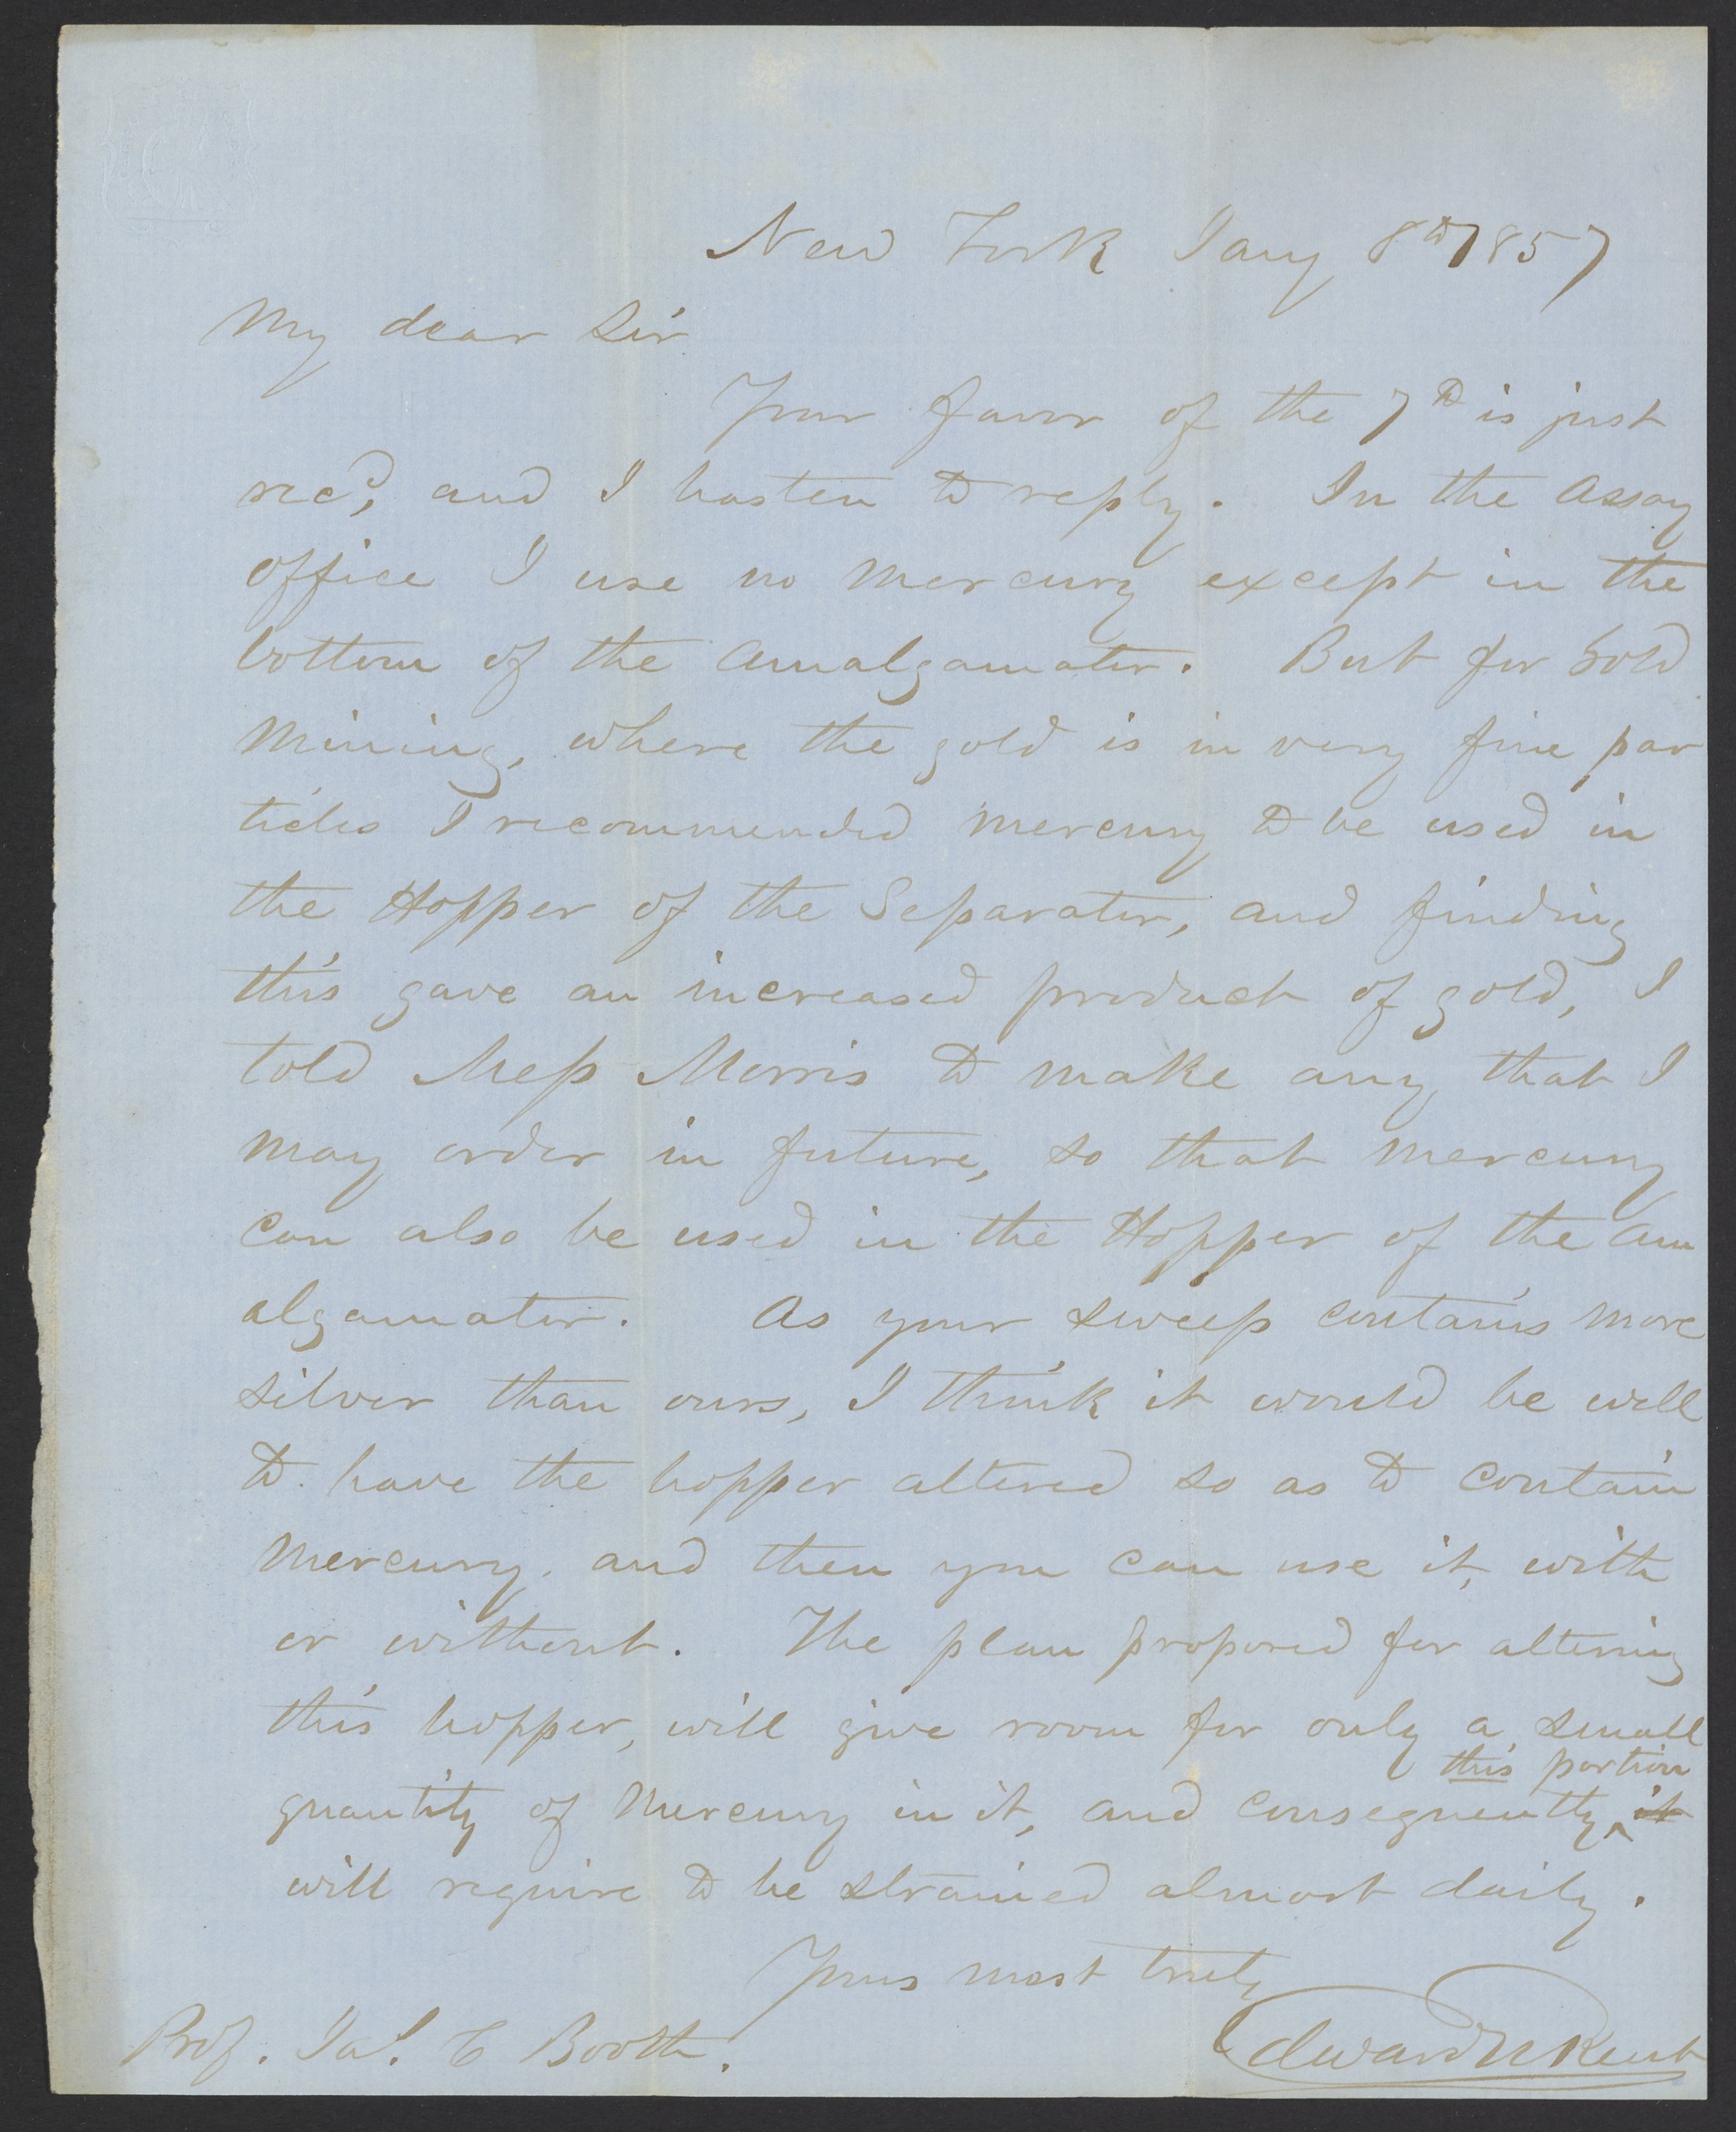 New York Jany 8th 1857
My dear Sir
Your favor of the 7th is just
recd, and I hasten to reply. In the Assay
office I use no mercury except in the
bottom of the Amalgamator. But for Gold
Mining, where the gold is in very fine par
ticles I recommended mercury to be used in
the Hopper of the Separator, and finding
this gave an increased product of gold, I
told Mess Morris to make any that I
may order in future, so that mercury
can also be used in the Hopper of the Am
algamator. As your sweep contains more
silver than ours, I think it would be well
to have the hopper altered so as to contain
Mercury, and then you can use it, with
or without. The plan proposed for altering
this hopper, will give room for only a small
this portion
quantity of Mercury in it, and consequently ^ it
will require to be strained almost daily.
Yours most truly
Prof. Jas. C Booth. Edward N Kent